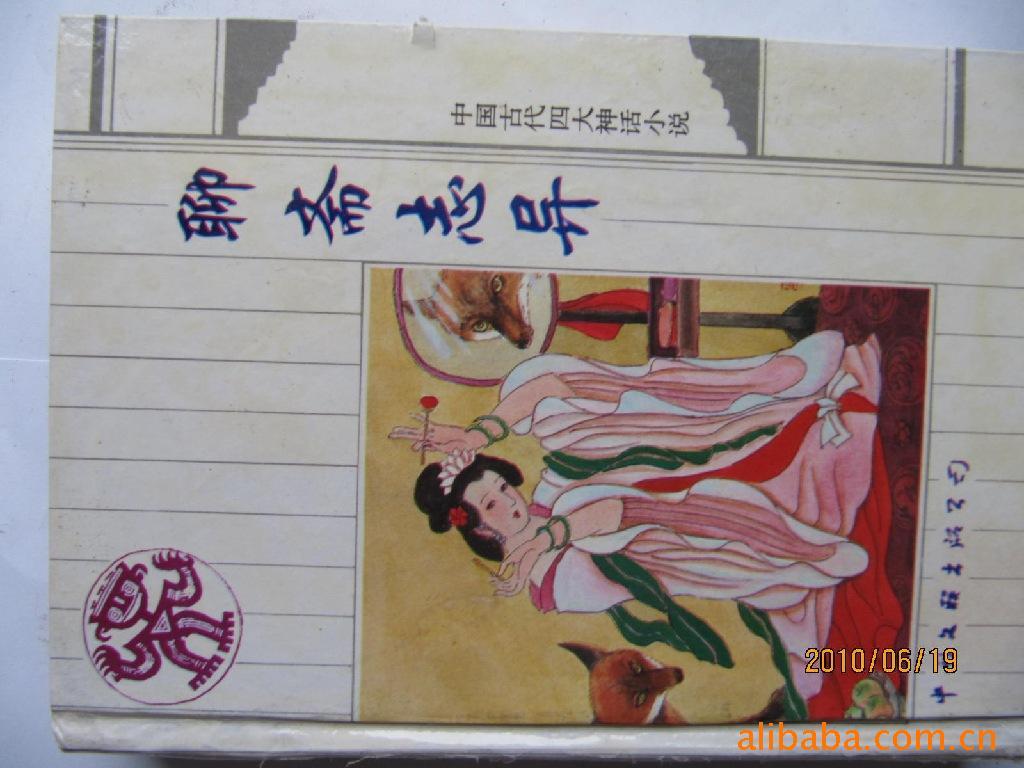 中国古代四大神话小说
聊斋志异
中国文联出版公司
2010/06/19
alibaba.com.cn